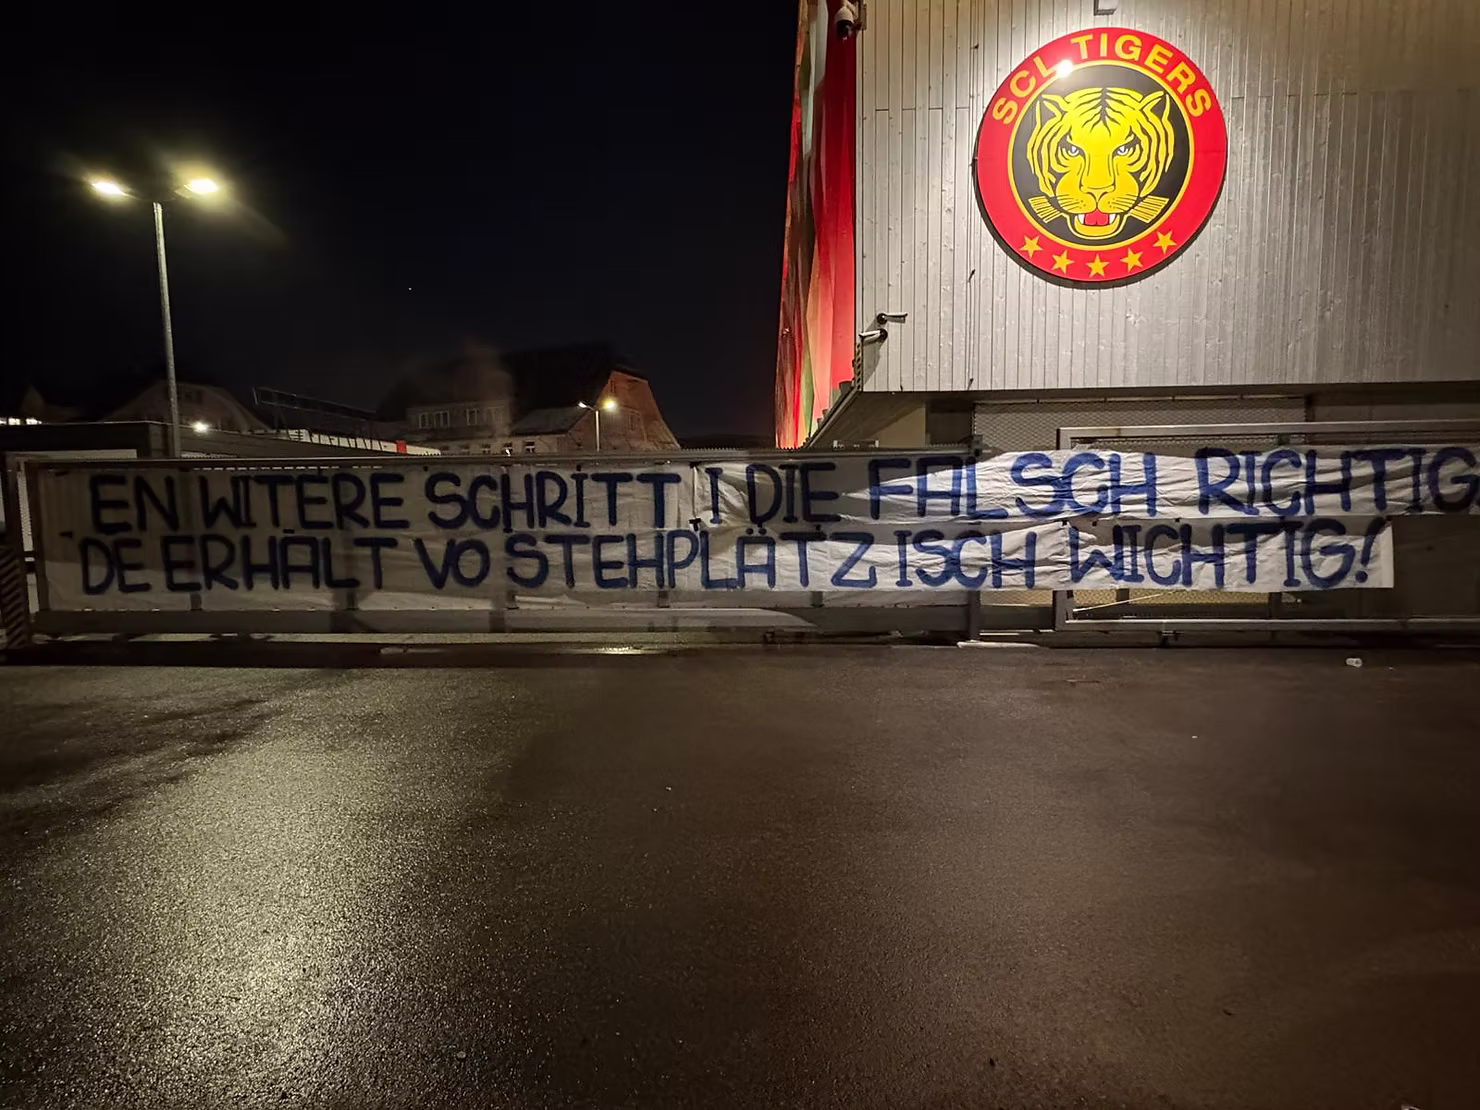 SCL TIGERS
EN WITERE SCHRITT I DIE FALSCH RICHTIG
DE ERHALT VO STEHPLÄTZ ISCH WICHTIG!